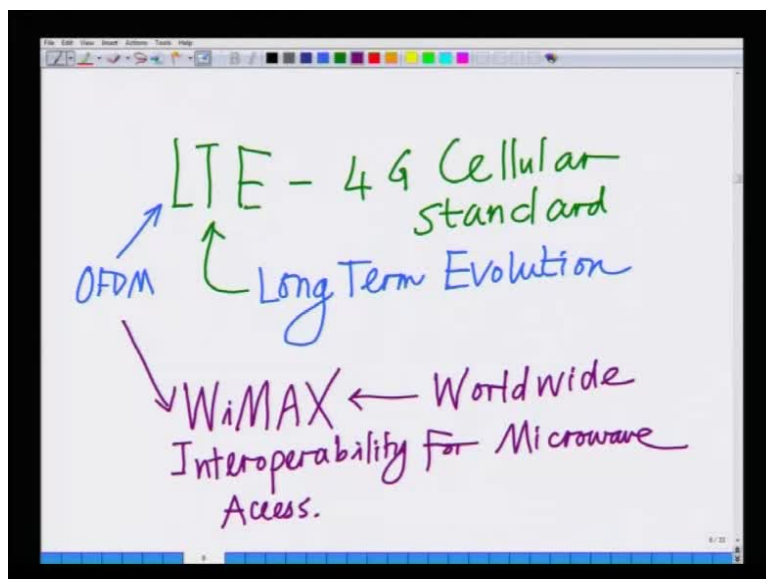 File Edit View Insert Actions Tools Help
LTE - 4G Cellular
standard
OFDM
Long Term Evolution
WiMAX ← Worldwide
Interoperability For Microwave
Access.